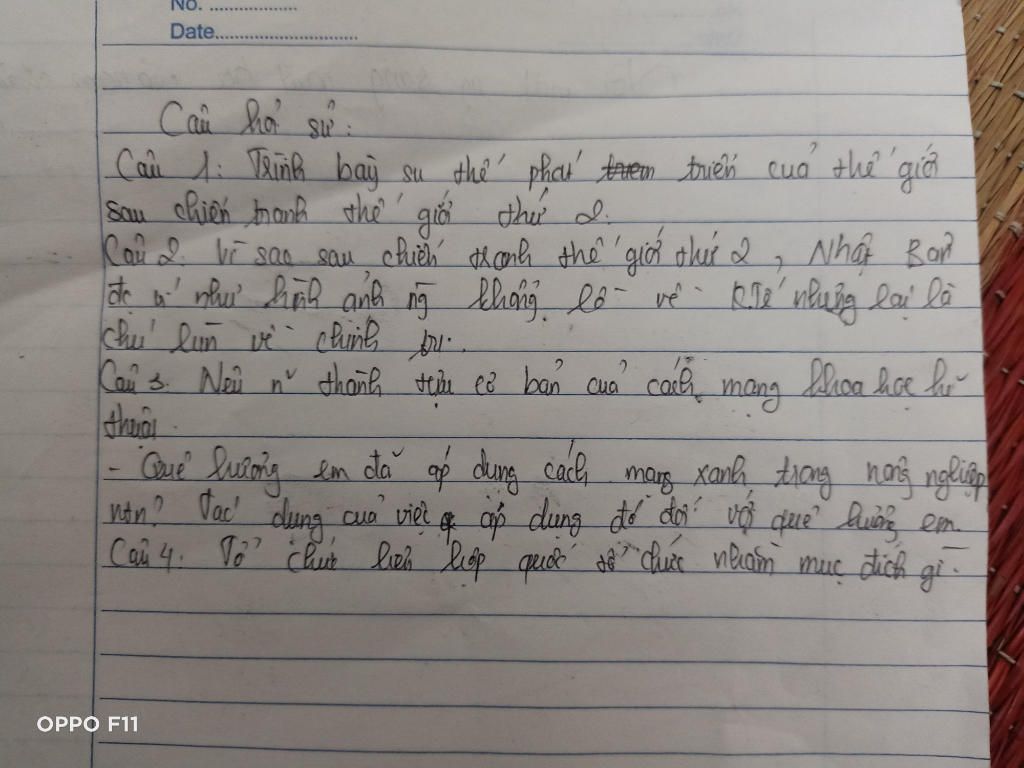 No. ..................
Date..............................
Câu hỏi sử:
Câu 1: Trình bày su thế phát triển của thế giới
sau chiến tranh thế giới thứ 2.
Câu 2. Vì sao sau chiến tranh thế giới thứ 2, Nhật Bản
đc ví như hình ảnh ng khổng lồ về KTế nhưng lại là
chú lùn về chính trị.
Câu 3. Nêu n~ thành tựu cơ bản của cách mạng khoa học kĩ
thuật.
- Quê hương em đã áp dụng cách mạng xanh trong nông nghiệp
ntn? Tác dụng của việc áp dụng đó đối với quê hương em.
Câu 4. Tổ chức liên hợp quốc tổ chức nhằm mục đích gì.
OPPO F11